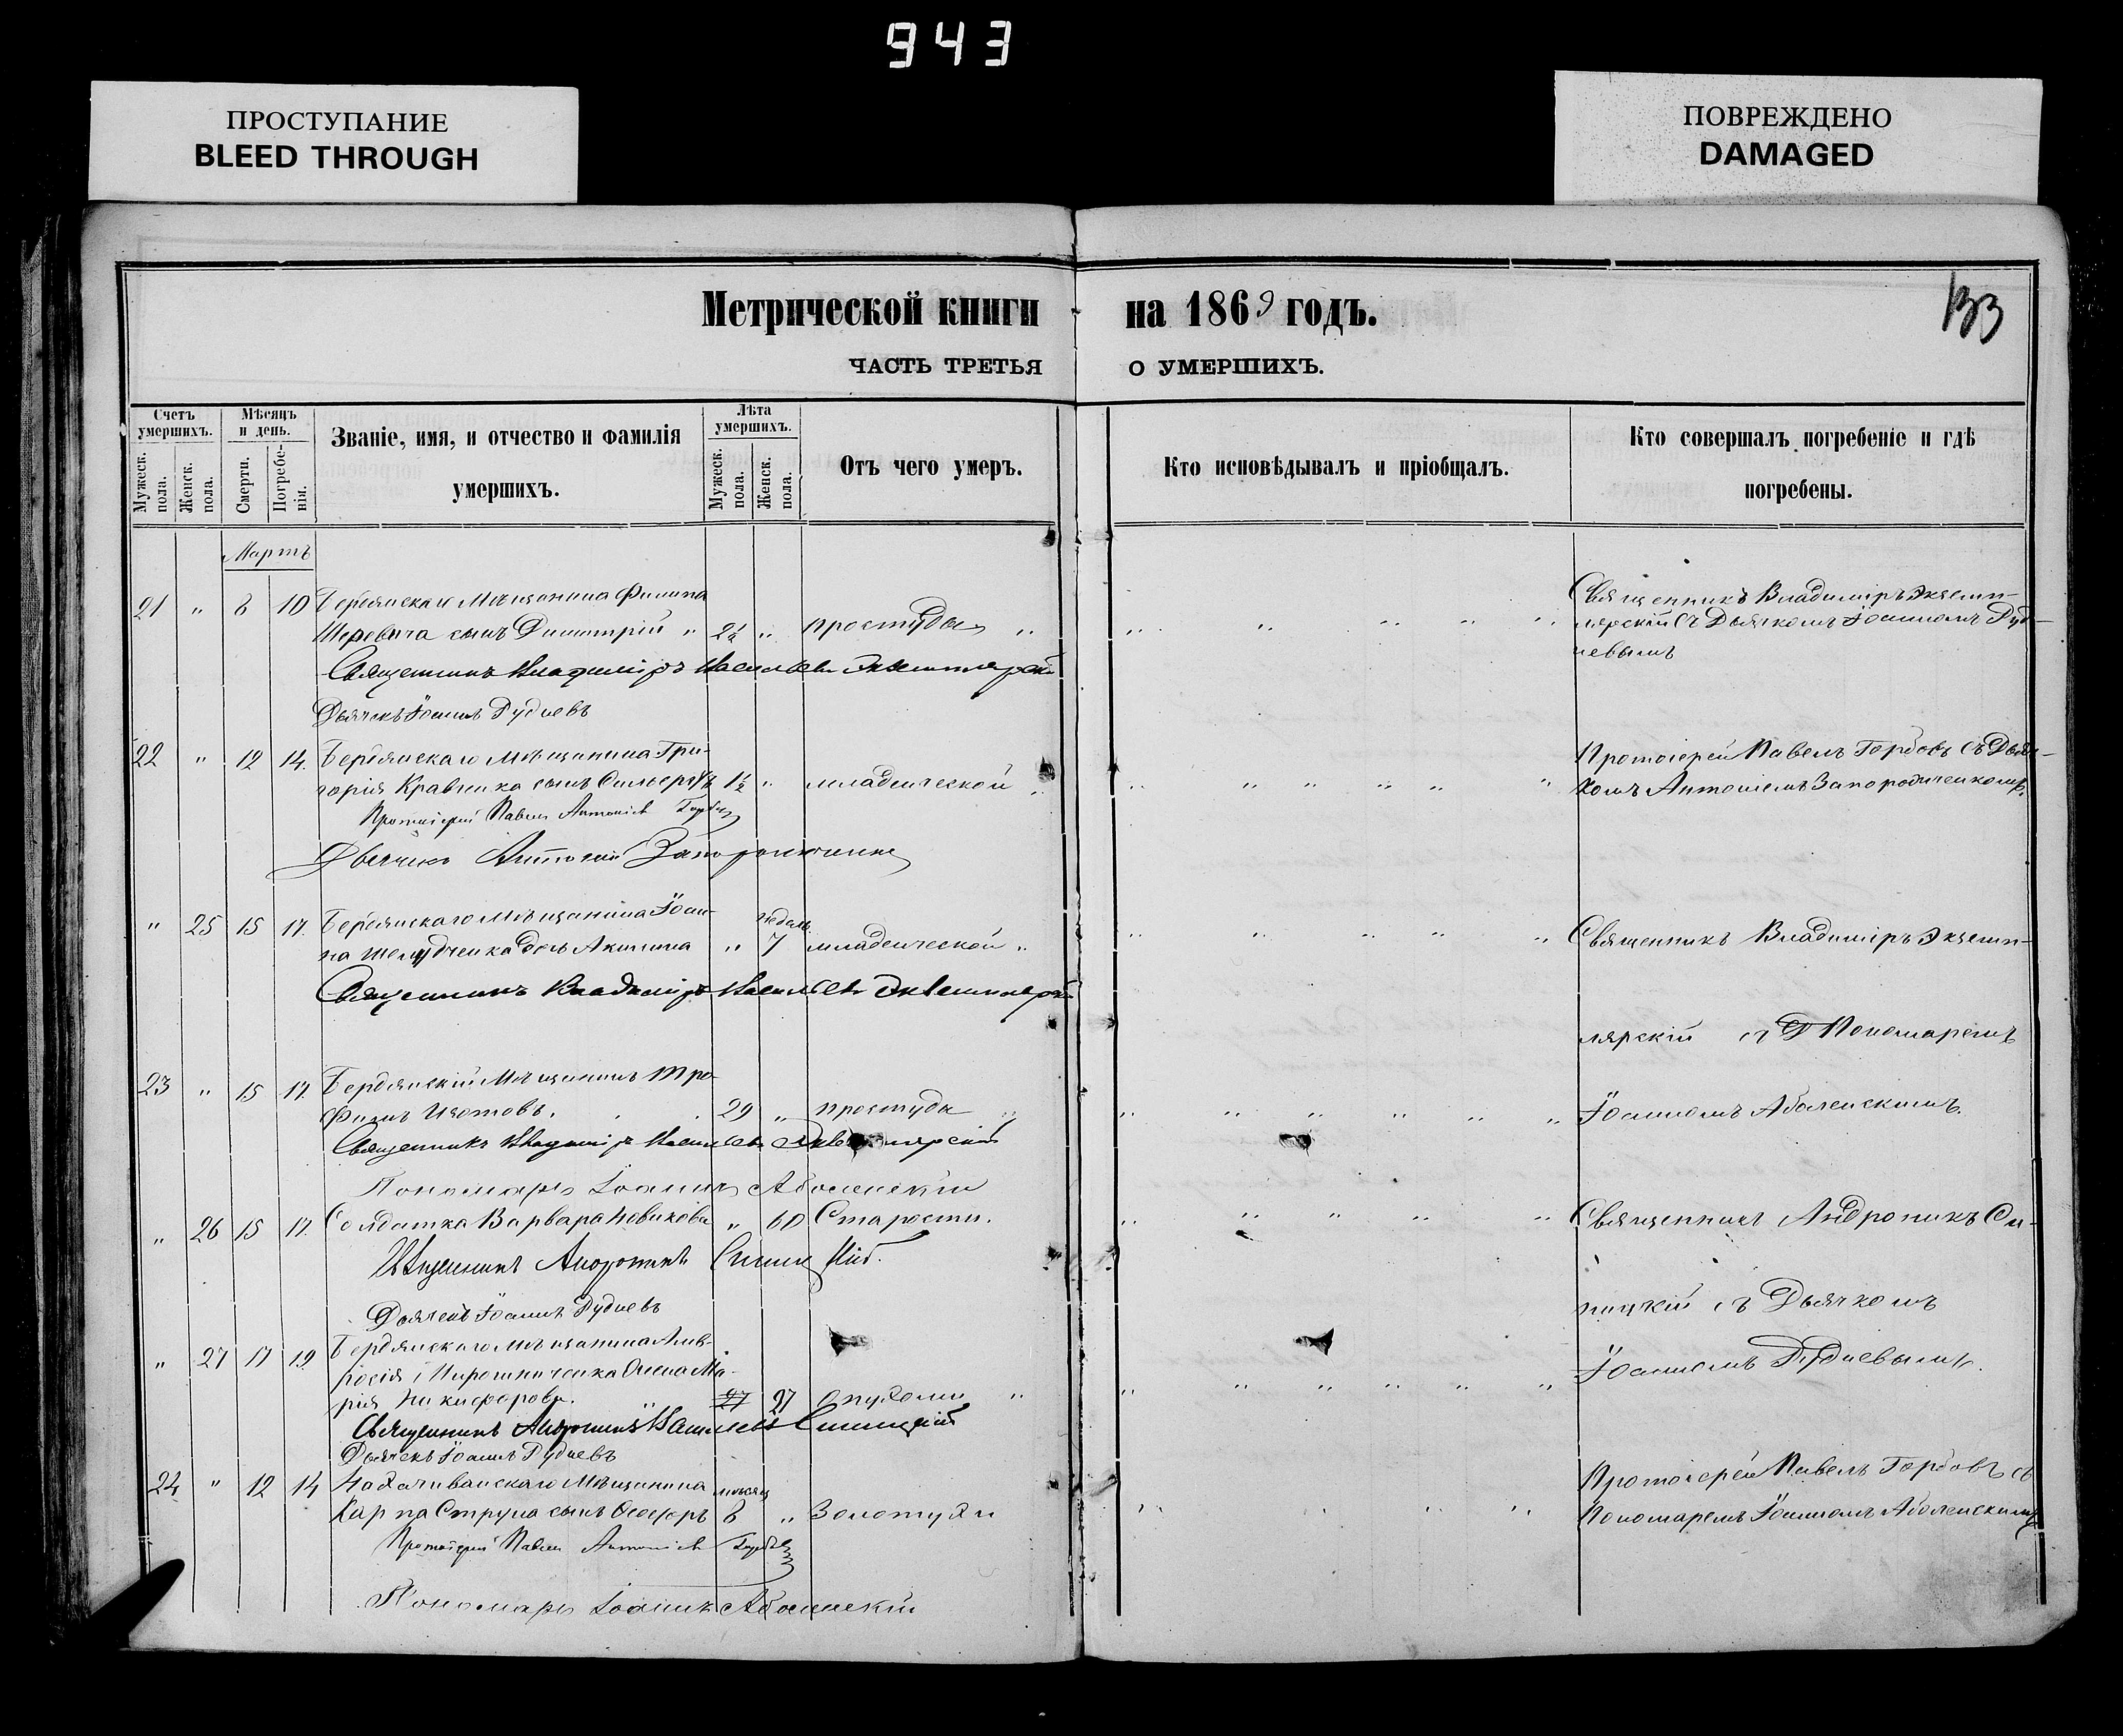 943
ПРОСТУПАНИЕ
BLEED THROUGH
ПОВРЕЖДЕНО
DAMAGED
Метрической книги на 1869 годъ.
133
ЧАСТЬ ТРЕТЬЯ О УМЕРШИХЪ.
Счетъ умершихъ.
Мужеск. пола.
Женск. пола.
Мѣсяцъ и день.
Смерти.
Погребенія.
Званіе, имя, и отчество и фамилія умершихъ.
Лѣта умершихъ.
Мужеск. пола.
Женск. пола.
Отъ чего умеръ.
Кто исповѣдывалъ и пріобщалъ.
Кто совершалъ погребеніе и гдѣ погребены.
Мартъ
21 " 8 10 Бердянскаго Мѣщанина Филипа
сынъ Димитрій " 2½ " простуды "
Священникъ Владиміръ Васильевъ Экземплярскій
Дьячекъ Іоаннъ Рудневъ
Священникъ Владиміръ Экземп-
лярскій съ Дьячкомъ Іоанномъ Руд-
невымъ
22 " 12 14. Бердянскаго Мѣщанина Гри-
горія Кравченка сынъ 1½ " младенческой "
Протоіерей Павелъ Антоніевъ Гербовъ
Дьячекъ Антоній
Протоіерей Павелъ Гербовъ съ Дьяч-
комъ Антоніемъ
" 25 15 17. Бердянскаго Мѣщанина Іоан-
на дочь Акилина " недѣль 7 младенческой "
Священникъ Владиміръ Васильевъ Экземплярскій
Священникъ Владиміръ Экземп-
лярскій съ Пономаремъ
23 " 15 17. Бердянскій Мѣщанинъ Тро-
фимъ Изотовъ. 29 " простуды
Священникъ Владиміръ Васильевъ Экземплярскій
Пономарь Іоаннъ Аболенскій
Іоанномъ Аболенскимъ.
" 26 15 17. Солдатка Варвара Новикова " 60 Старости.
Священникъ Андроникъ Синицкій.
Дьячекъ Іоаннъ Рудневъ
Священникъ Андроникъ Си-
ницкій съ Дьячкомъ
" 27 17 19 Бердянскаго мѣщанина Амв-
росія Мирошниченка жена Ма-
рія Никифорова. " 27 27 опухоли "
Священникъ Андроникъ Васильевъ Синицкій
Дьячекъ Іоаннъ Рудневъ
Іоанномъ Рудневымъ.
24 " 12 14 Мѣщанина мѣсяц
Карпа Струпа сынъ Ѳеодоръ 8 " Золотухи
Протоіерей Павелъ Антоніевъ Гербовъ
Пономарь Іоаннъ Аболенскій
Протоіерей Павелъ Гербовъ съ
Пономаремъ Іоанномъ Аболенскимъ